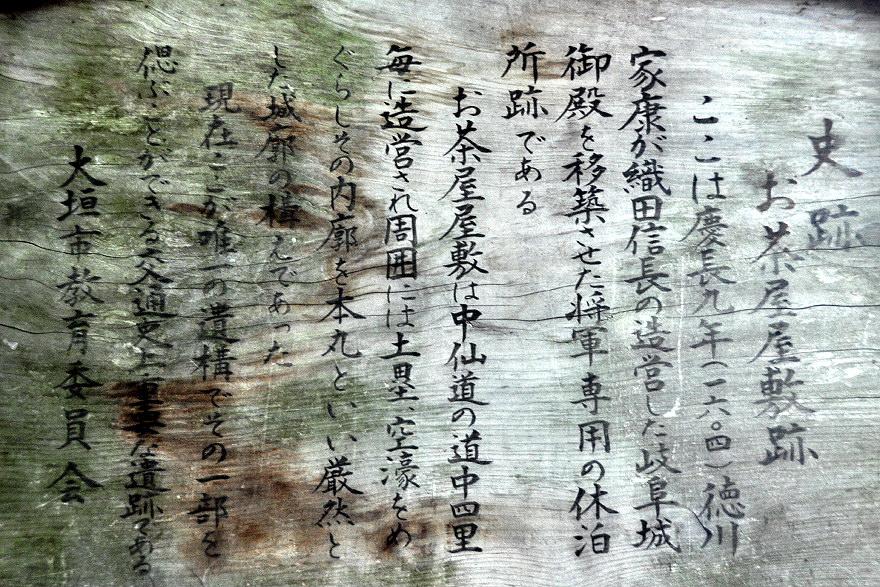 史跡
お茶屋屋敷跡
ここは慶長九年(一六〇四)徳川
家康が織田信長の造営した岐阜城
御殿を移築させた将軍専用の休泊
所跡である
お茶屋屋敷は中仙道の道中四里
毎に造営され周囲には土塁、空濠をめ
ぐらしその内廓を本丸といい厳然と
した城廓の構えであった
現在ここが唯一の遺構でその一部を
偲ぶことができる交通史上重要な遺跡である
大垣市教育委員会